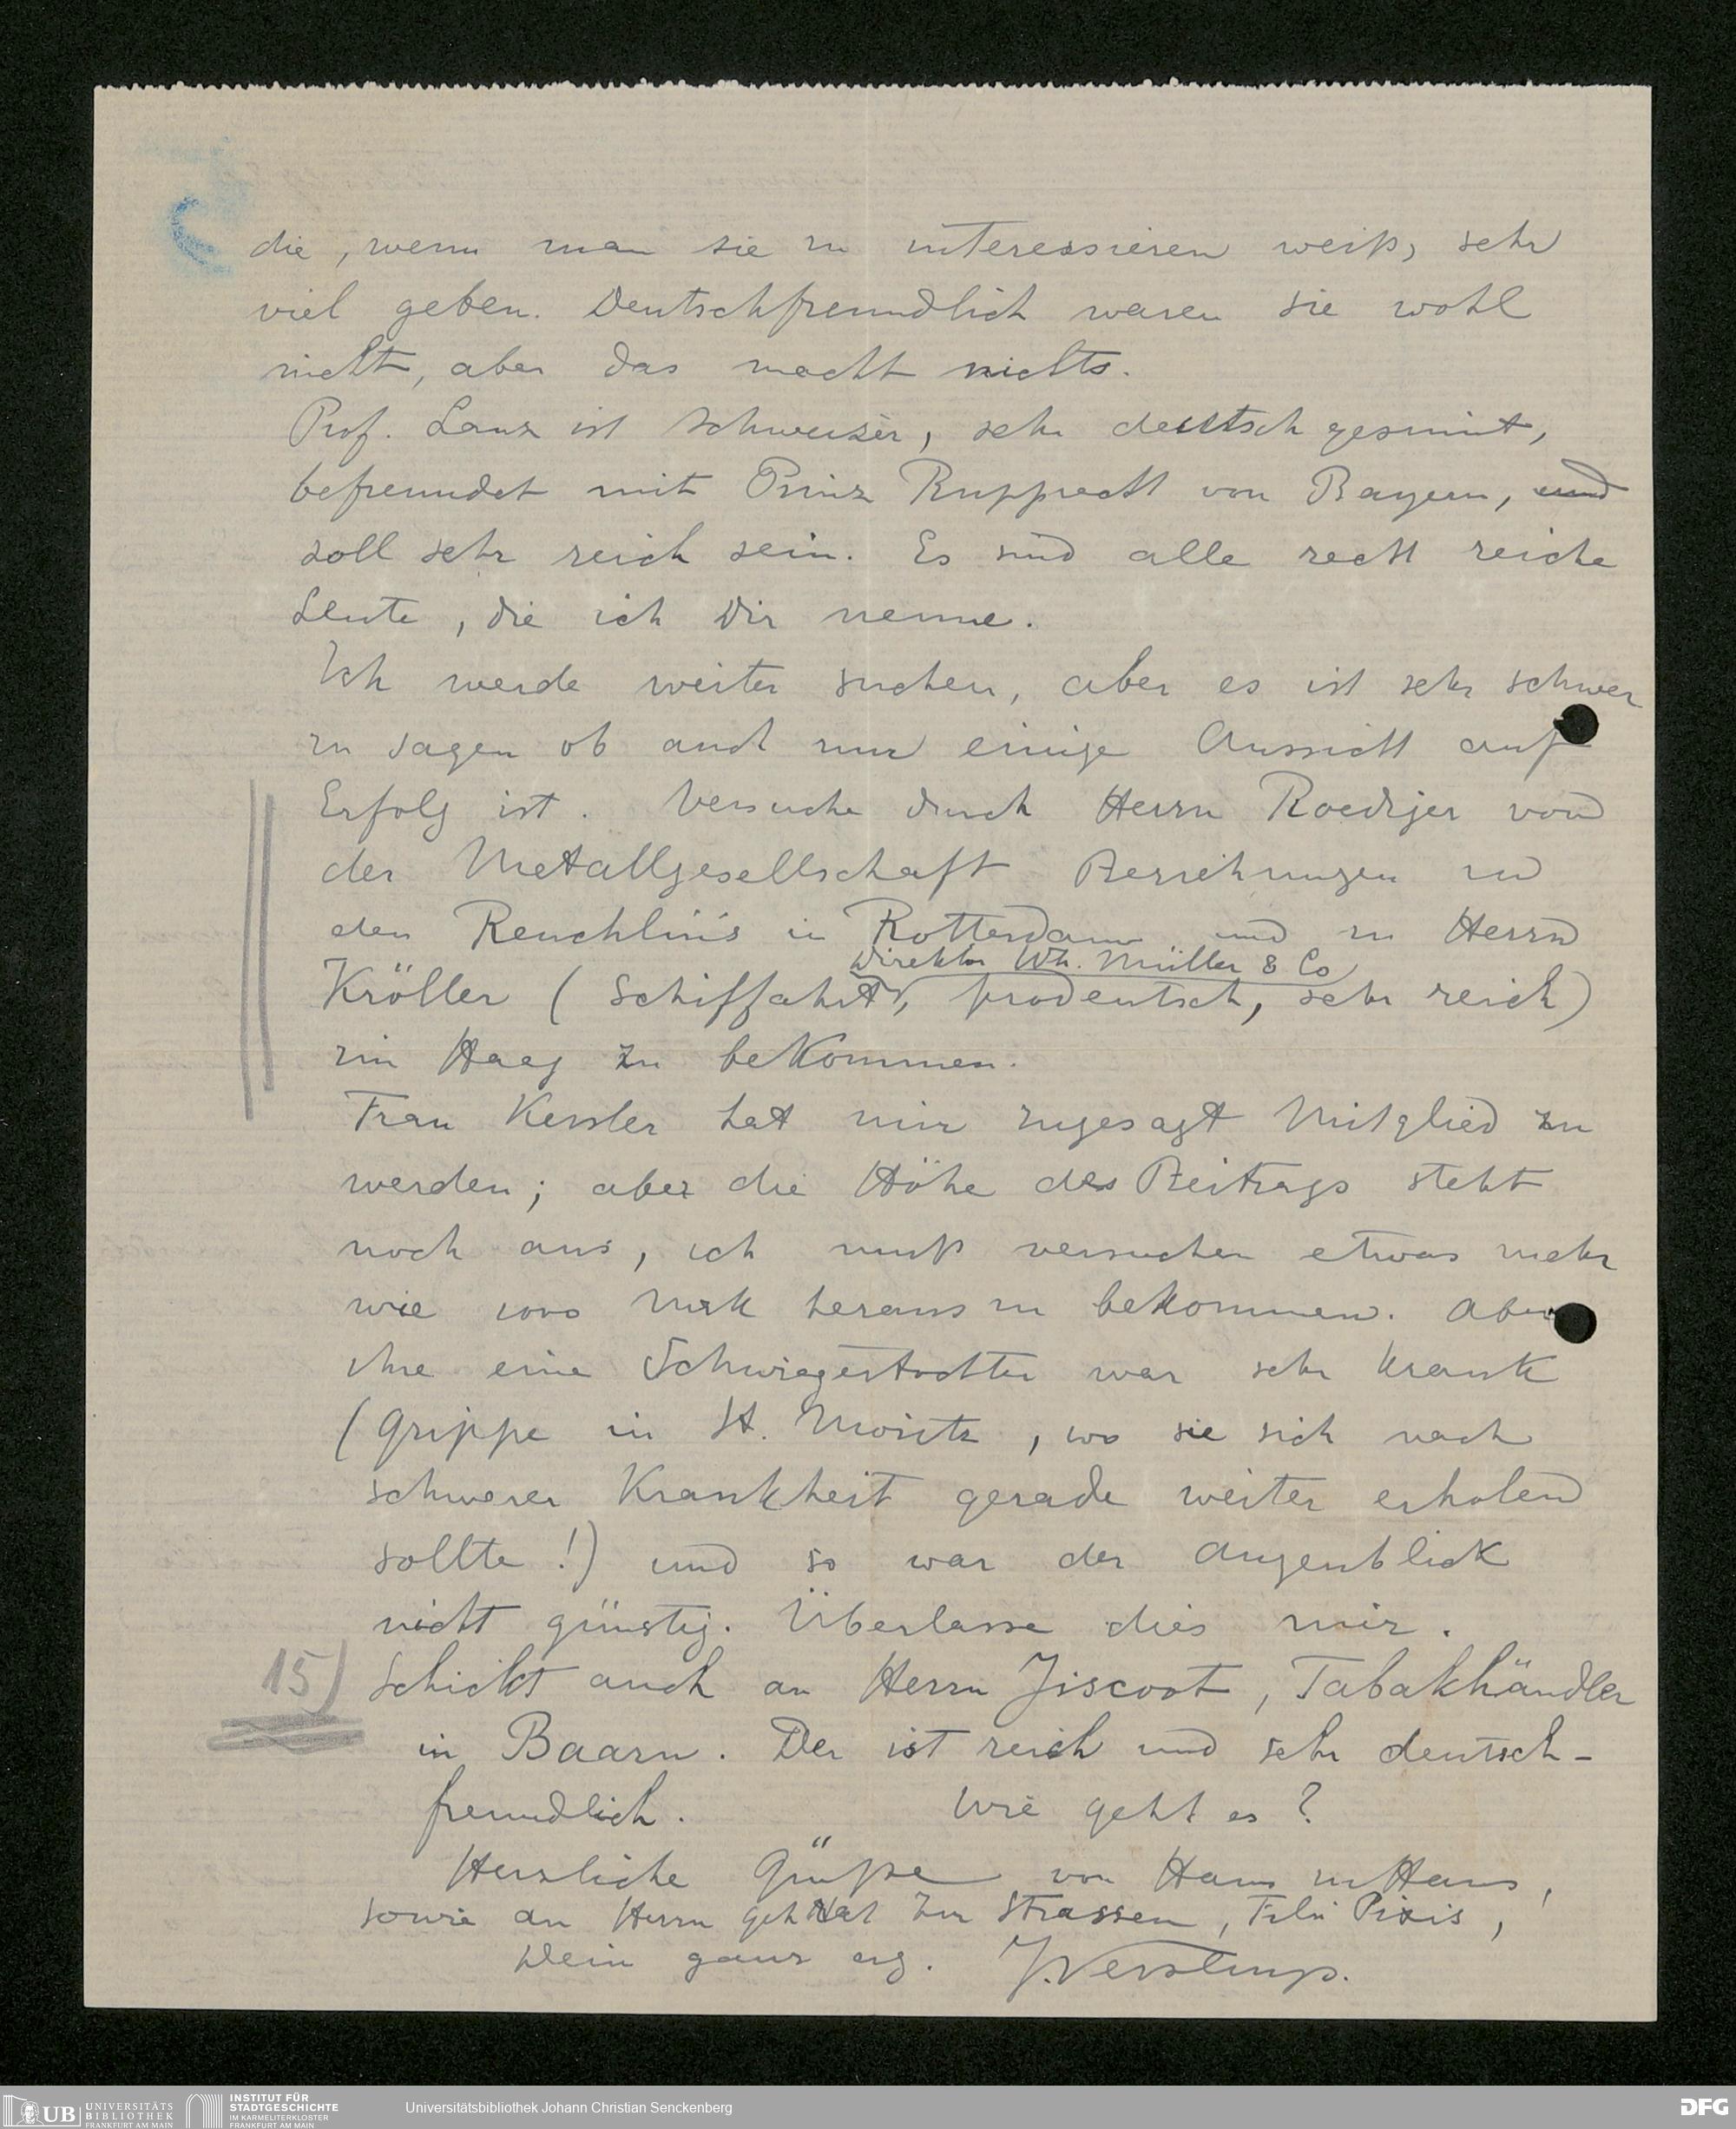 die, wenn man sie zu interessieren weiß, sehr
viel geben. Deutschfreundlich waren sie wohl
nicht, aber das macht nichts.
Prof. Lanz ist Schweizer, sehr deutsch gesinnt,
befreundet mit Prinz Rupprecht von Bayern, und
soll sehr reich sein. Es sind alle recht reiche
Leute, die ich Dir nenne.
Ich werde weiter suchen, aber es ist sehr schwer
zu sagen ob auch nur einige Aussicht auf
Erfolg ist. Versuche durch Herrn Roediger von
der Metallgesellschaft Beziehungen zu
den Reuchlin's in Rotterdam und zu Herrn
Direktor Wh. Müller & Co
Kröller (Schiffahrt, prodeutsch, sehr reich)
im Haag zu bekommen.
Frau Kessler hat mir zugesagt Mitglied zu
werden; aber die Höhe des Beitrags steht
noch aus, ich muß versuchen etwas mehr
wie 1000 Mark heraus zu bekommen. Aber
ihre eine Schwiegertochter war sehr krank
(Grippe in St. Moritz, wo sie sich nach
schwerer Krankheit gerade weiter erholen
sollte!) und so war der Augenblick
nicht günstig. Überlasse dies mir.
15) Schickt auch an Herrn Jiscoot, Tabakhändler
in Baarn. Der ist reich und sehr deutsch-
freundlich. Wie geht es?
Herzliche Grüße von Haus zu Haus,
sowie an Herrn Geh Rat Zur Strassen, Frln Pixis,
Dein ganz erg. J. Versluys.
UB UNIVERSITÄTS
BIBLIOTHEK
FRANKFURT AM MAIN
INSTITUT FÜR
STADTGESCHICHTE
IM KARMELITERKLOSTER
FRANKFURT AM MAIN
Universitätsbibliothek Johann Christian Senckenberg
DFG